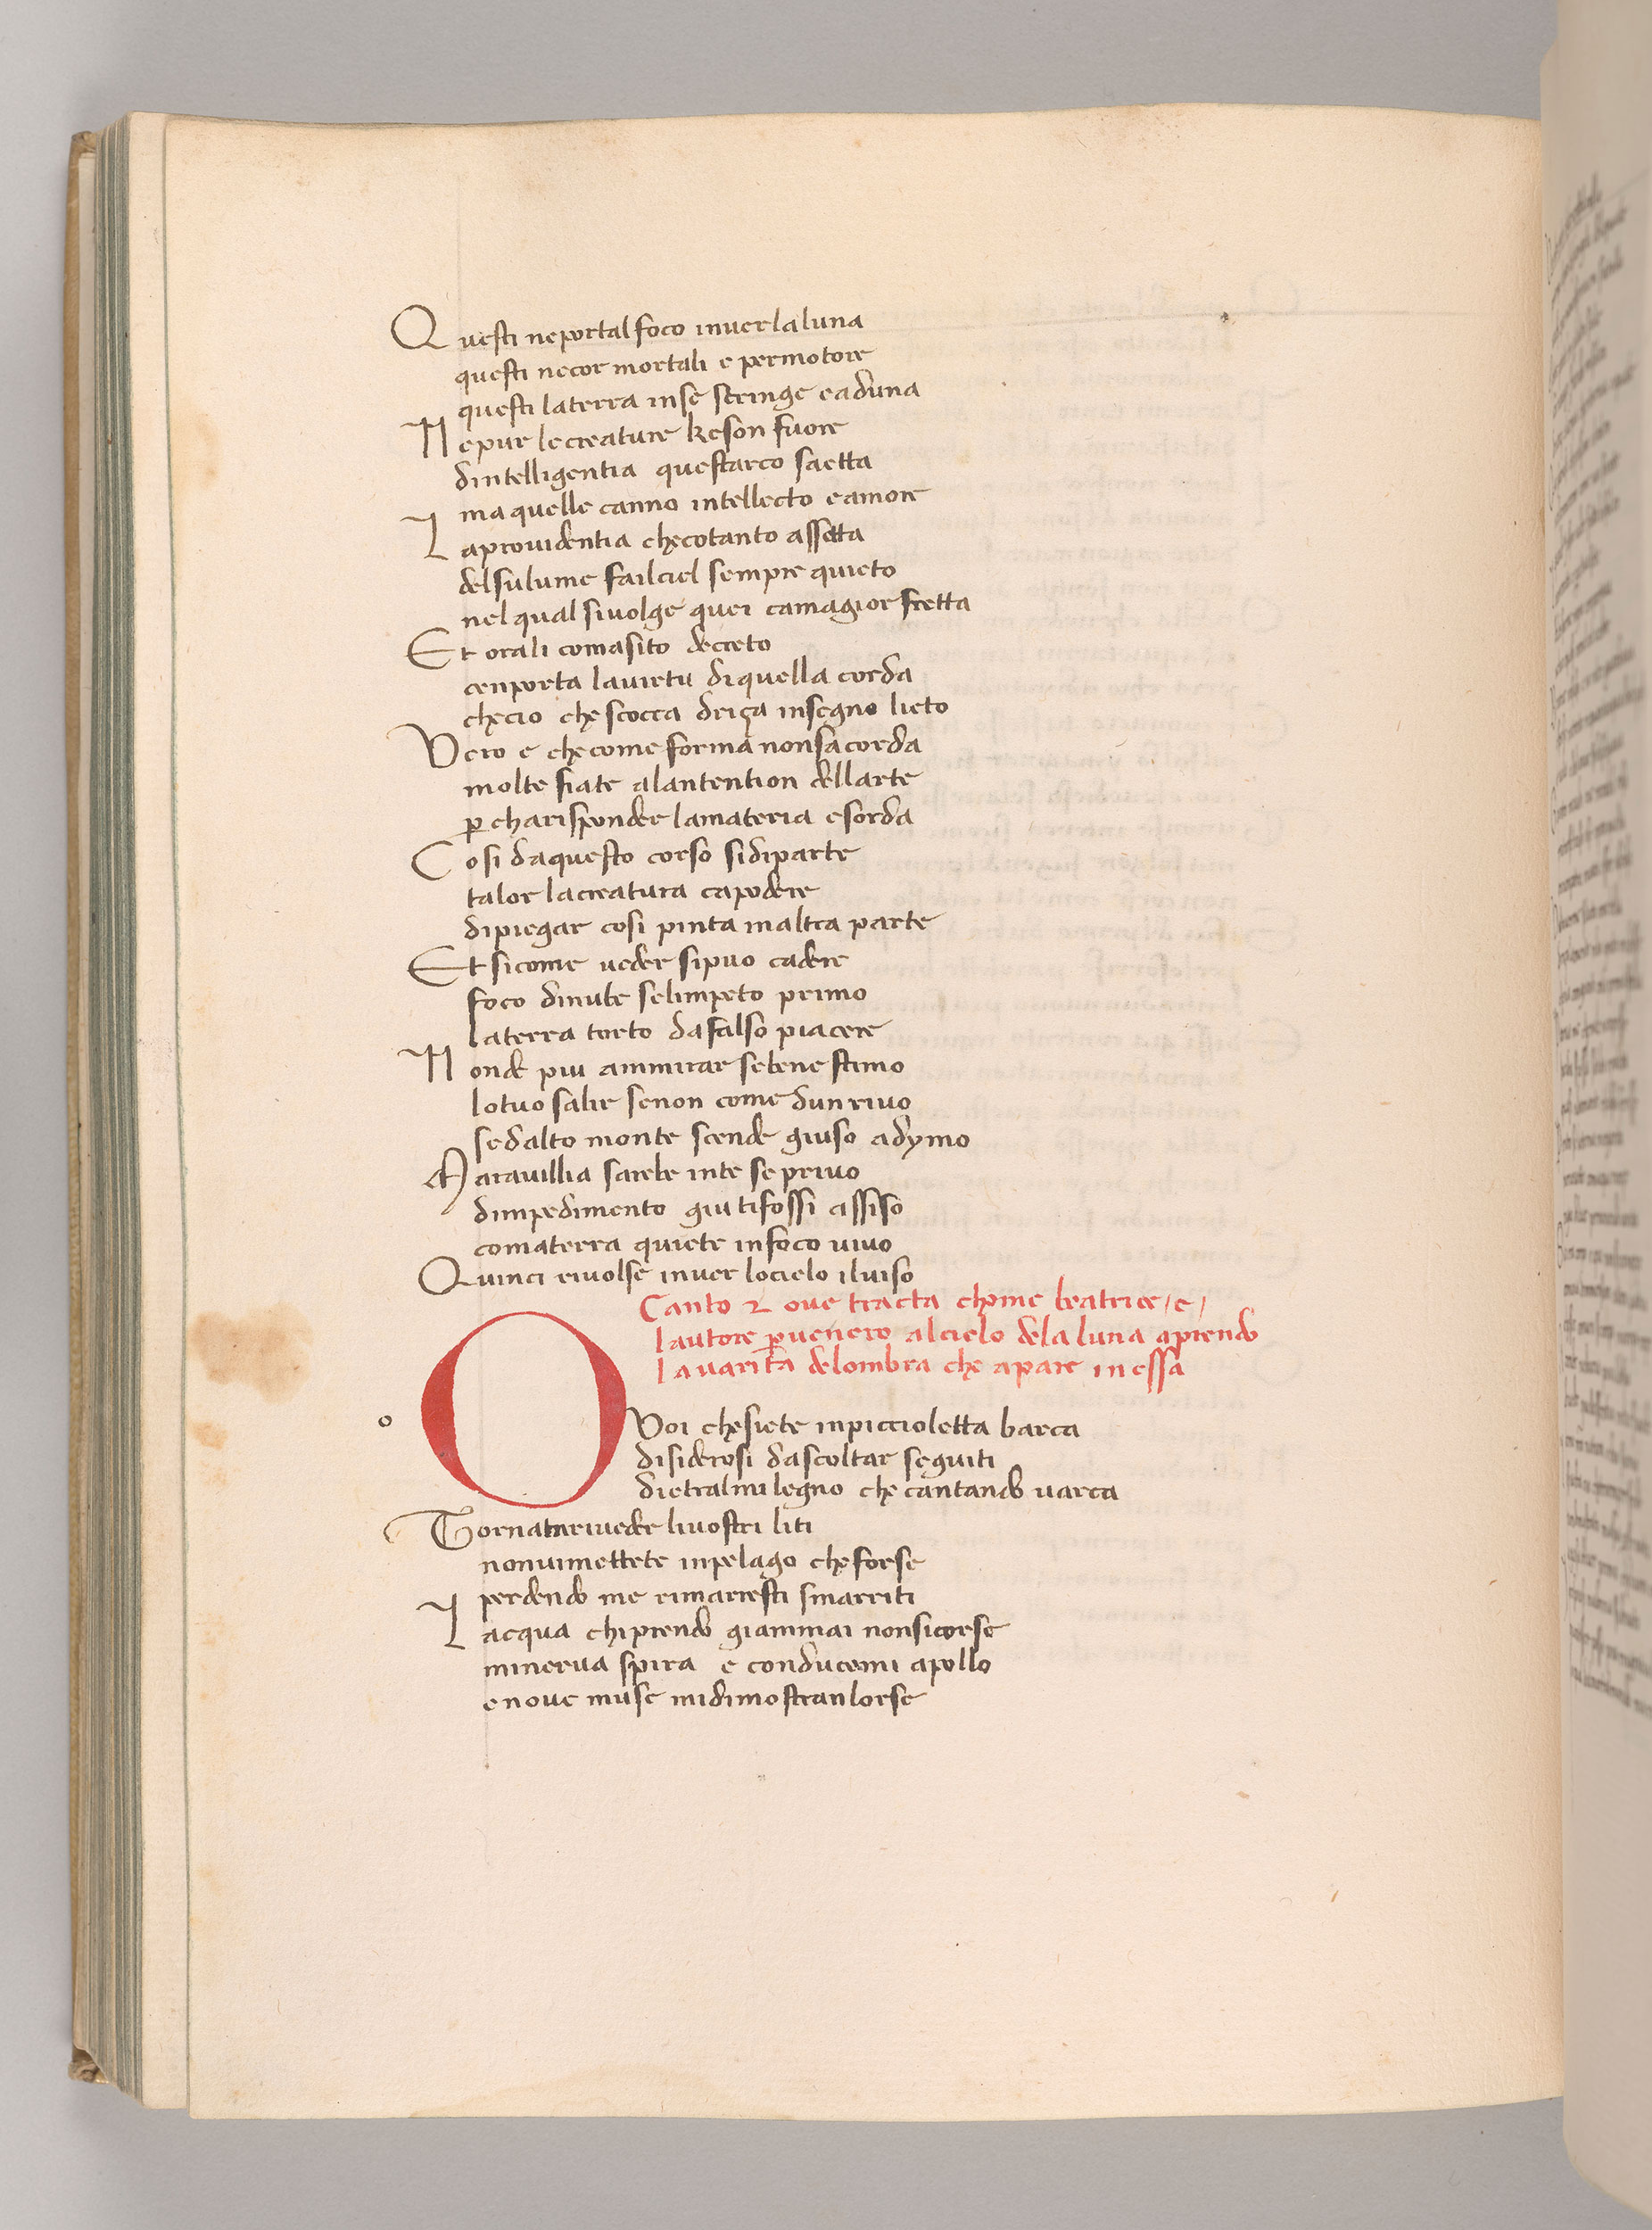 Questi neportal foco inuerlaluna
questi necor mortali e permotore
questi laterra inse stringe eaduna
Nepur lecreature keson fuore
dintelligentia questarco saetta
ma quelle canno intellecto eamore
Laprouidentia checotanto assetta
delsulume failciel sempre quieto
nel qual siuolge quei camagior fretta
Et orali comasito decreto
cenporta lauirtu diquella corda
checio che scocca driça insegno lieto
Vero e checome forma nonsacorda
molte fiate alantention dellarte
p charisponder lamateria esorda
Cosi daquesto corso sidiparte
talor lacreatura capodere
dipiegar cosi pinta inaltra parte
Et sicome ueder sipuo cadere
foco dinube selimpeto primo
laterra torto dafalso piacere
Nonde piu ammirar sebene stimo
lotuo salir senon come dun riuo
sedalto monte scende giuso adymo
Marauillia sarebe inte se priuo
dimpedimento giu tifossi assiso
comaterra quiete infoco uiuo
Quinci riuolse inuer locielo iluiso
Canto 2 oue tracta chome beatrice / e /
lautore puenero alcielo dela luna aprendo
la uarita delombra che apare in essa
o
O Voi chesiete inpiccioletta barca
disiderosi dascoltar seguiti
dietralmi legno che cantando uarca
Tornatariueder liuostri liti
nonuimettete inpelago cheforse
perdendo me rimarresti smarriti
Lacqua chiprendo giammai nonsicorse
minerua spira e conducemi apollo
enoue muse midimostranlorse